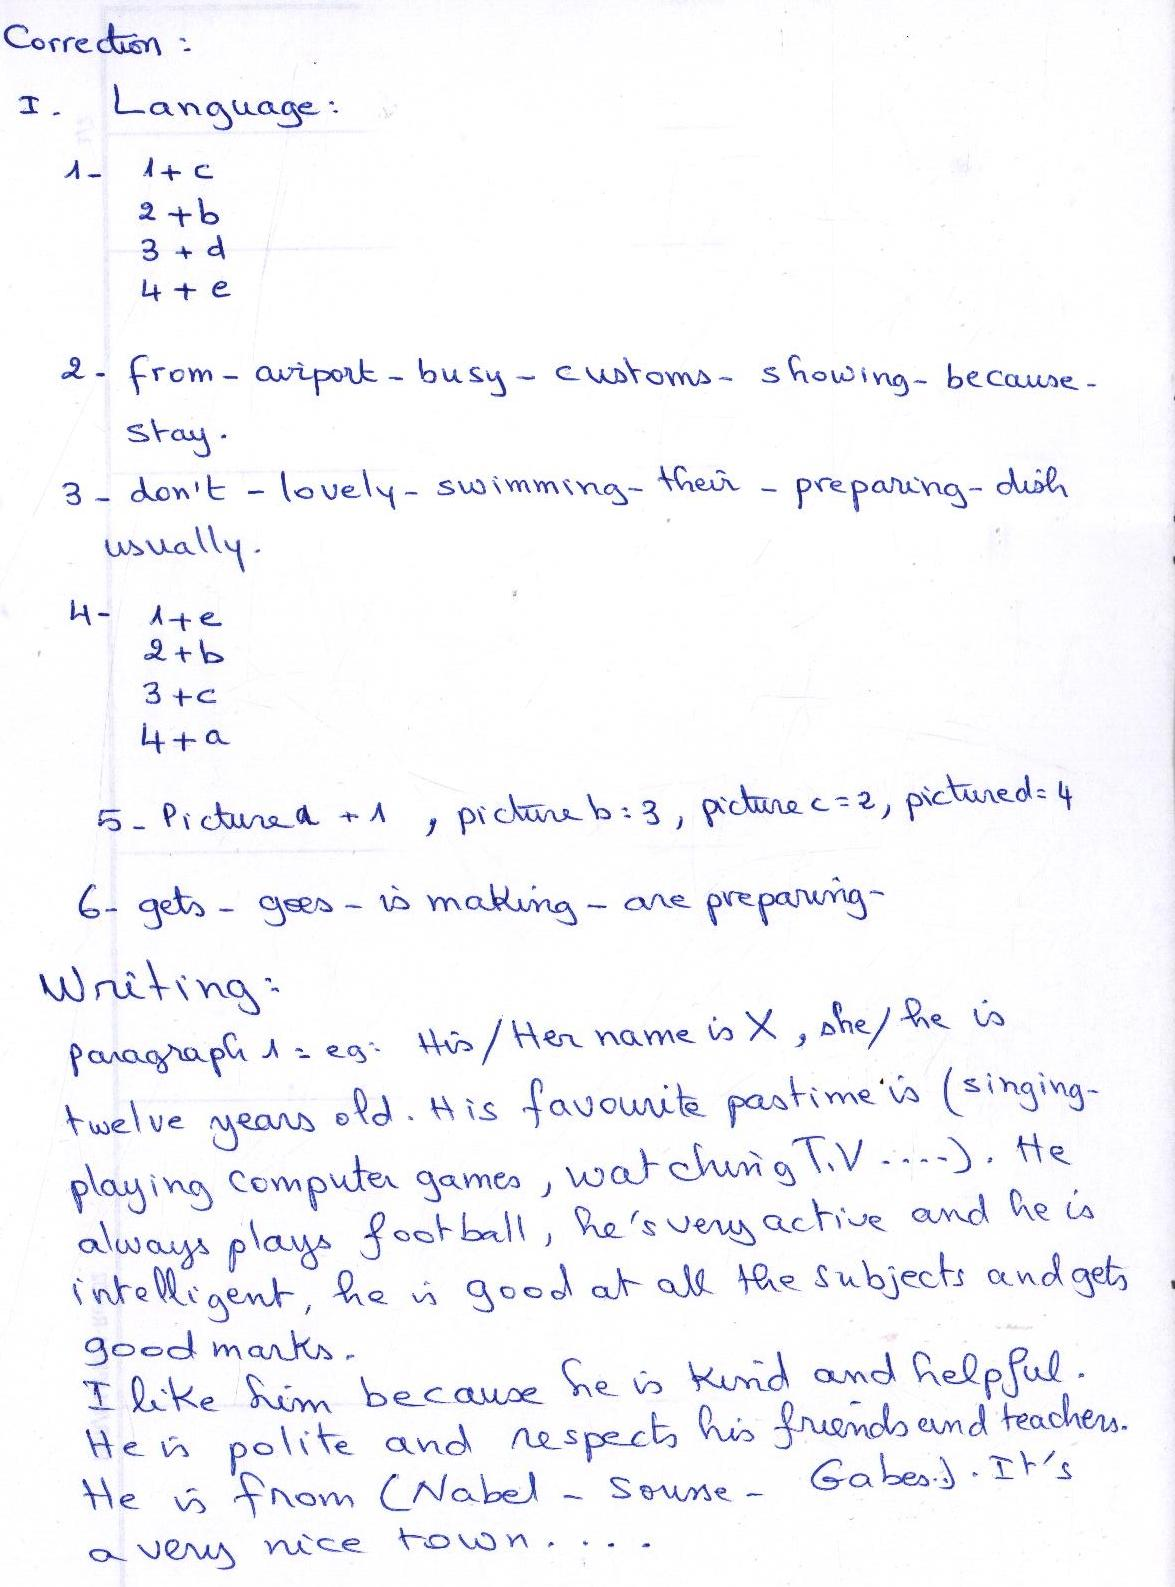 Correction :
I. Language:
1- 1+c
2+b
3+d
4+e
2- from - airport - busy - customs - showing - because -
stay.
3- don't - lovely - swimming - their - preparing - dish
usually.
4- 1+e
2+b
3+c
4+a
5- Picture a + 1 , picture b : 3, picture c = 2, picture d = 4
6- gets - goes - is making - are preparing -
Writing:
paragraph 1 = eg: His/Her name is X, she/he is
twelve years old. His favourite pastime is (singing -
playing computer games, watching T.V ....). He
always plays football, he's very active and he is
intelligent, he is good at all the subjects and gets
good marks.
I like him because he is kind and helpful.
He is polite and respects his friends and teachers.
He is from (Nabel - Sousse - Gabes..). It's
a very nice town....